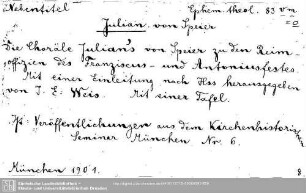 Nebentitel
Ephem. theol. 83 v m
= o
Julian von Speier
Die Choräle Julian's von Speier zu den Reim
offizien des Franziscus- und Antoniusfestes.
Mit einer Einleitung nach Hss herausgegeben
von J. E. Weis. Mit einer Tafel.
Veröffentlichungen aus dem Kirchenhistorischen
Seminar München Nr. 6.
München 1901.